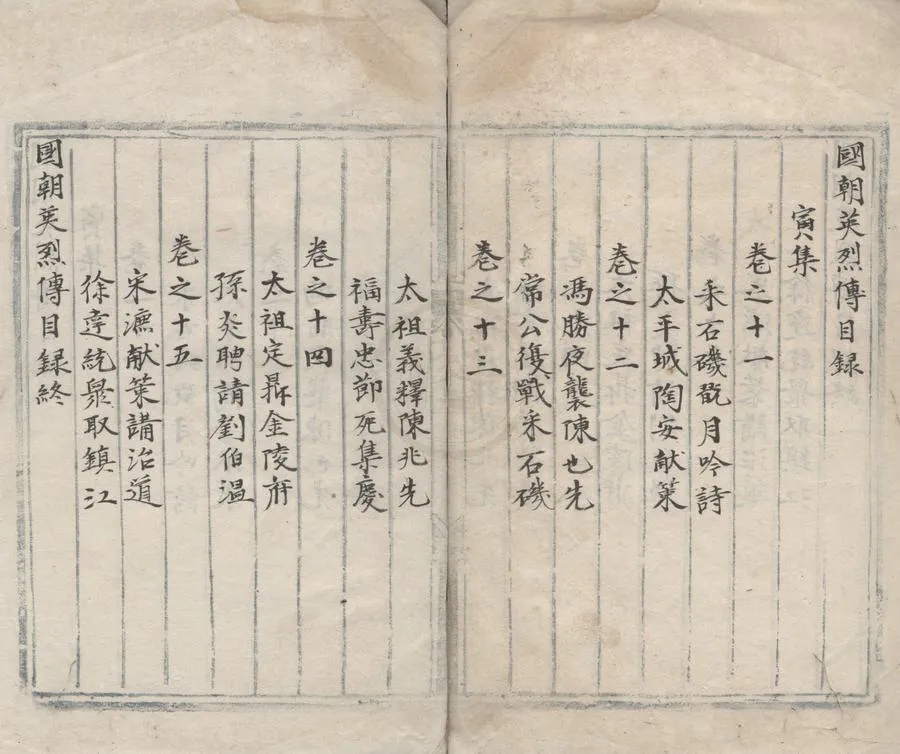 國朝英烈傳目録
寅集
卷之十一
采石磯翫月吟詩
太平城陶安献策
卷之十二
馮勝夜襲陳也先
常公復戰采石磯
卷之十三
太祖義釋陳兆先
福壽忠節死集慶
卷之十四
太祖定鼎金陵府
孫炎聘請劉伯溫
卷之十五
宋濂献策講治道
徐達統衆取鎮江
國朝英烈傳目録終